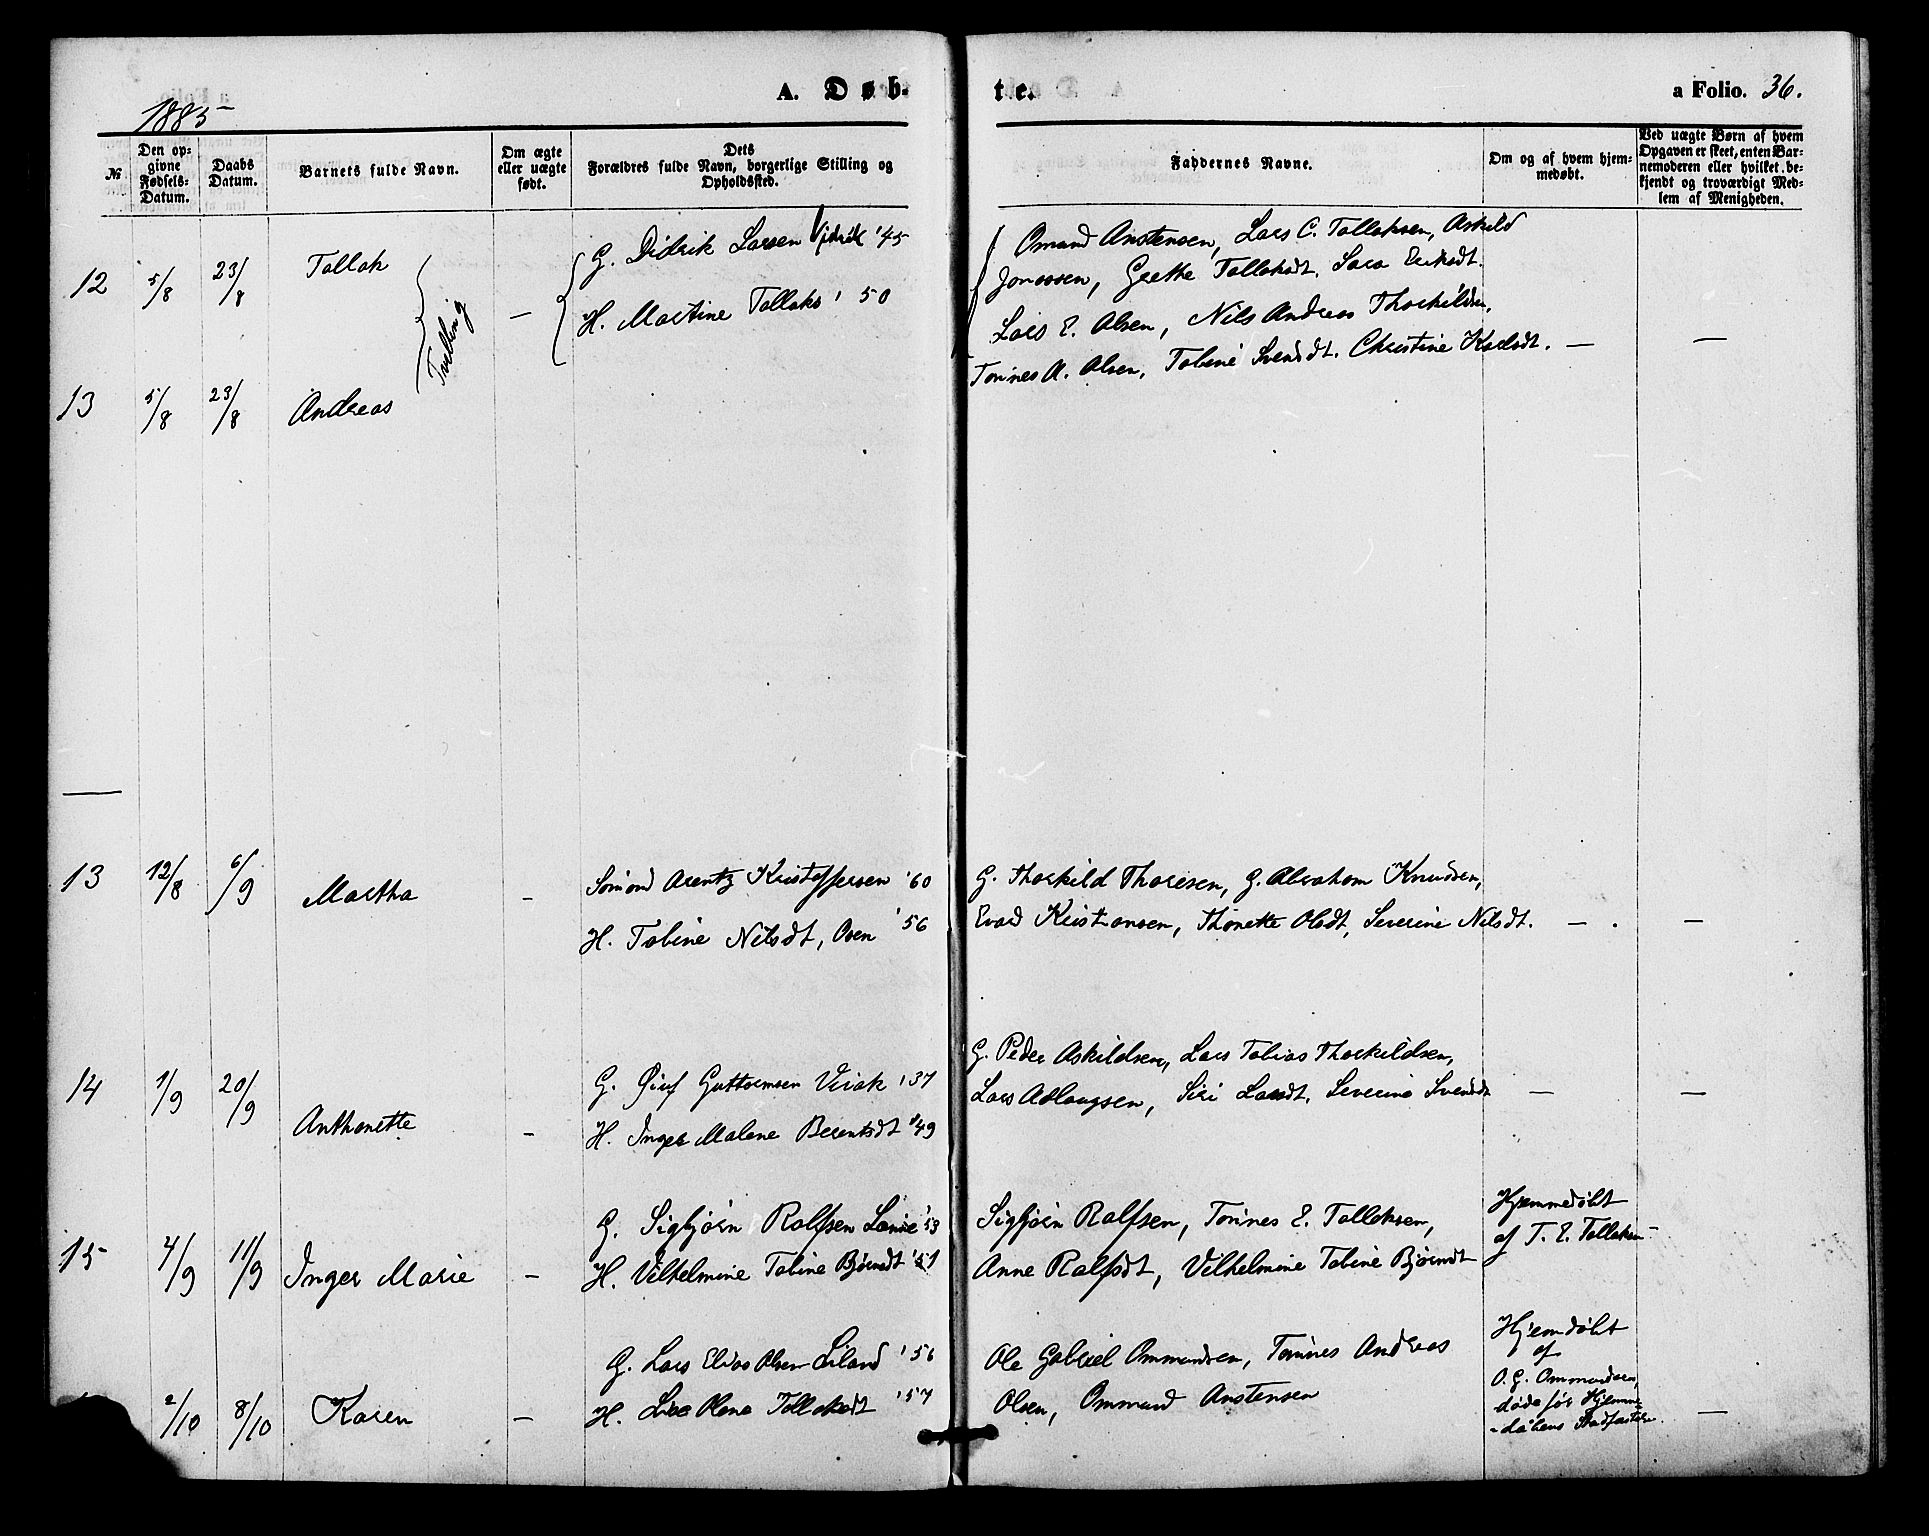 1885
A. Døb-
te.
a Folio. 36.
№
Den op-
givne
Fødsels-
Datum.
Daabs
Datum.
Barnets fulde Navn.
Om ægte
eller uægte
født.
Dets
Forældres fulde Navn, borgerlige Stilling og
Opholdssted.
Faddernes Navne.
Om og af hvem hjem-
medøbt.
Ved uægte Børn af hvem
Opgaven er skeet, enten Bar-
nemoderen eller hvilket be-
kjendt og troværdigt Med-
lem af Menigheden.
12 5/8 23/8 Tollak
Tvilling
—
G. Didrik Larsen '45
H. Martine Tollaks' 50
Omund Anstensen, Lars C. Tollaksen, Askild
Jonassen, Grethe Tollaksdt. Sara Eriksdt.
Lars E. Olsen, Nils Andreas Thorkildsen,
Tønnes A. Olsen, Tobine Svendsdt. Christine Karlsdt. — —
13 5/8 23/8 Andreas
13 12/8 6/9 Martha —
Arentz Kristoffersen '60
H. Tobine Nilsdt, Osen '56
G. Thorkild Thoresen, G. Abraham Knudsen,
Kristiansen, Thonette Olsdt, Severine Nilsdt. — . —
14 1/9 20/9 Anthonette —
G. Guttormsen Virak '37
H. Inger Malene Berentsdt '49
G. Peder Askildsen, Lars Tobias Thorkildsen,
Lars Aslaugsen, Siri Larsdt. Severine Svendsdt — —
15 4/9 11/9 Inger Marie —
G. Sigbjørn Rolfsen '53
H. Vilhelmine Tobine Bjørnsdt '51
Sigbjørn Rolfsen, Tønnes E. Tollaksen,
Anne Rolfsdt, Vilhelmine Tobine Bjørnsdt
Hjemmedøbt
af T. E. Tollaksen —
2/10 8/10 Karen —
G. Lars Elias Olsen Liland '56
H. Olene Tollaksdt '57
Ole Gabriel Ommundsen, Tønnes Andreas
Olsen, Ommund Anstensen
Hjemdøbt
af
O. G. Ommundsen,
døde før Hjemme-
-daabens Stadfæstelse. —